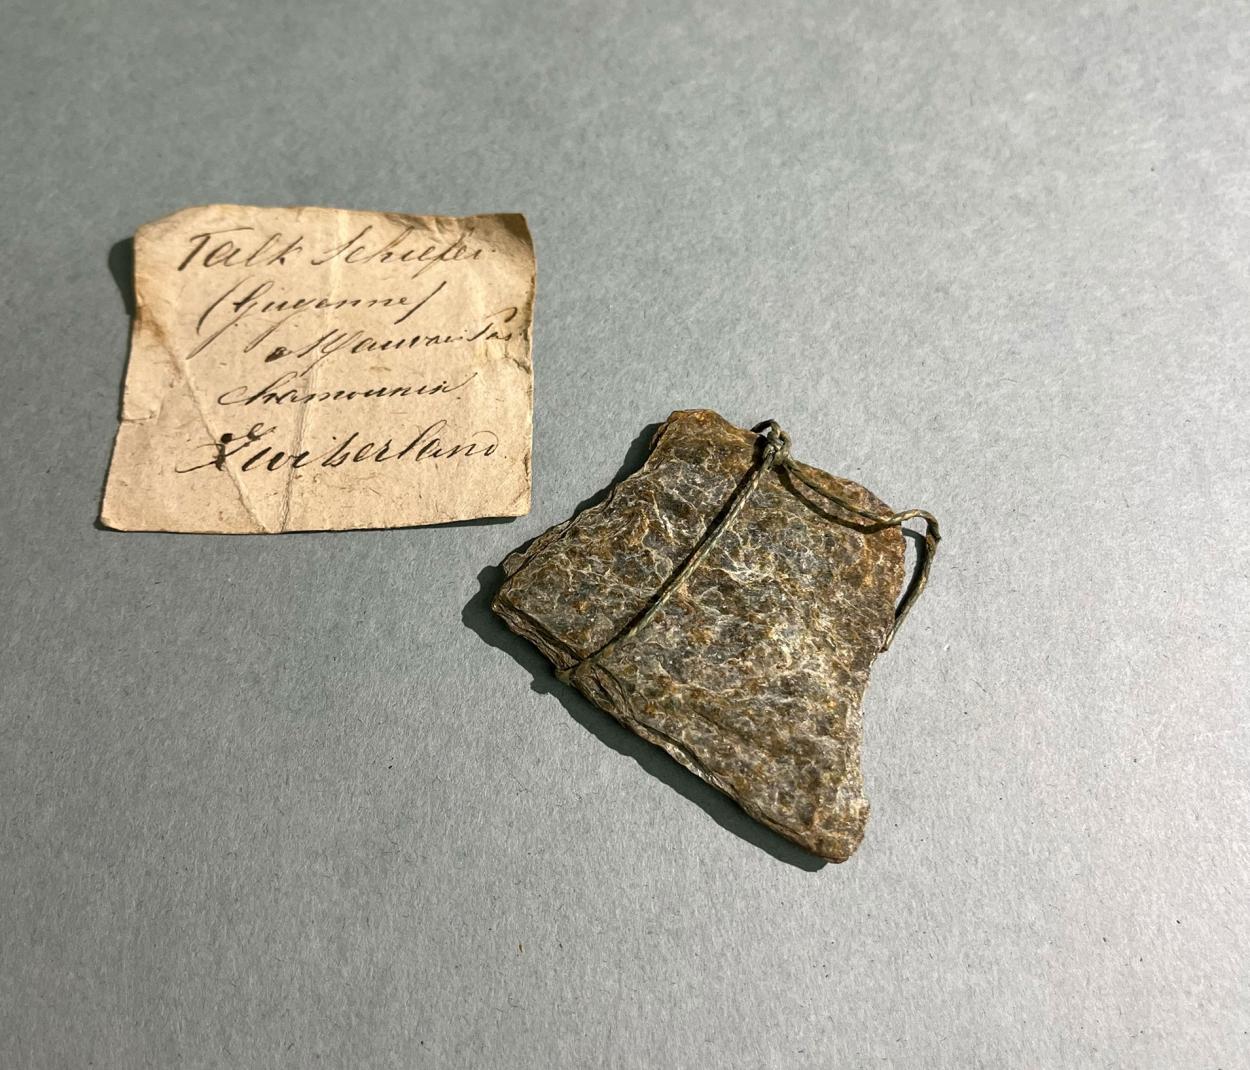 Talk Schiefer.
(Guyenne)
Mauvais Pas
Chamounix.
Switserland.